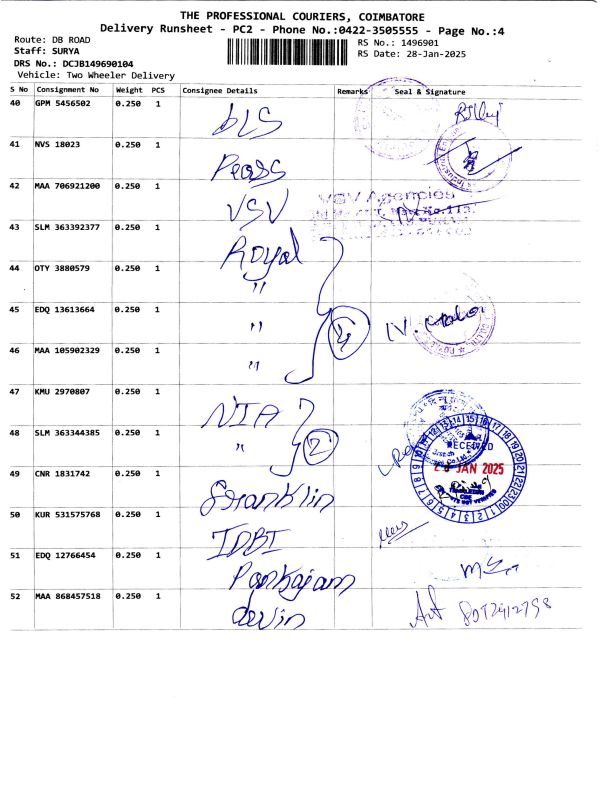 THE PROFESSIONAL COURIERS, COIMBATORE
Delivery Runsheet - PC2 - Phone No.:0422-3505555 - Page No.:4
Route: DB ROAD
RS No.: 1496901
Staff: SURYA
RS Date: 28-Jan-2025
DRS No.: DCJB149690104
Vehicle: Two Wheeler Delivery
S No Consignment No Weight PCS Consignee Details Remarks Seal & Signature
40 GPM 5456502 0.250 1 DLS
41 NVS 18023 0.250 1 Pears
42 MAA 706921200 0.250 1 VSV
VSV Agencies
43 SLM 363392377 0.250 1 Royal
44 OTY 3880579 0.250 1 "
45 EDQ 13613664 0.250 1 "
4
46 MAA 105902329 0.250 1 "
47 KMU 2970807 0.250 1 NIA
48 SLM 363344385 0.250 1 "
2
RECEIVED
JAN 2025
49 CNR 1831742 0.250 1 Franklin
50 KUR 531575768 0.250 1 IDBI
51 EDQ 12766454 0.250 1 Pankajam
52 MAA 868457518 0.250 1 devin